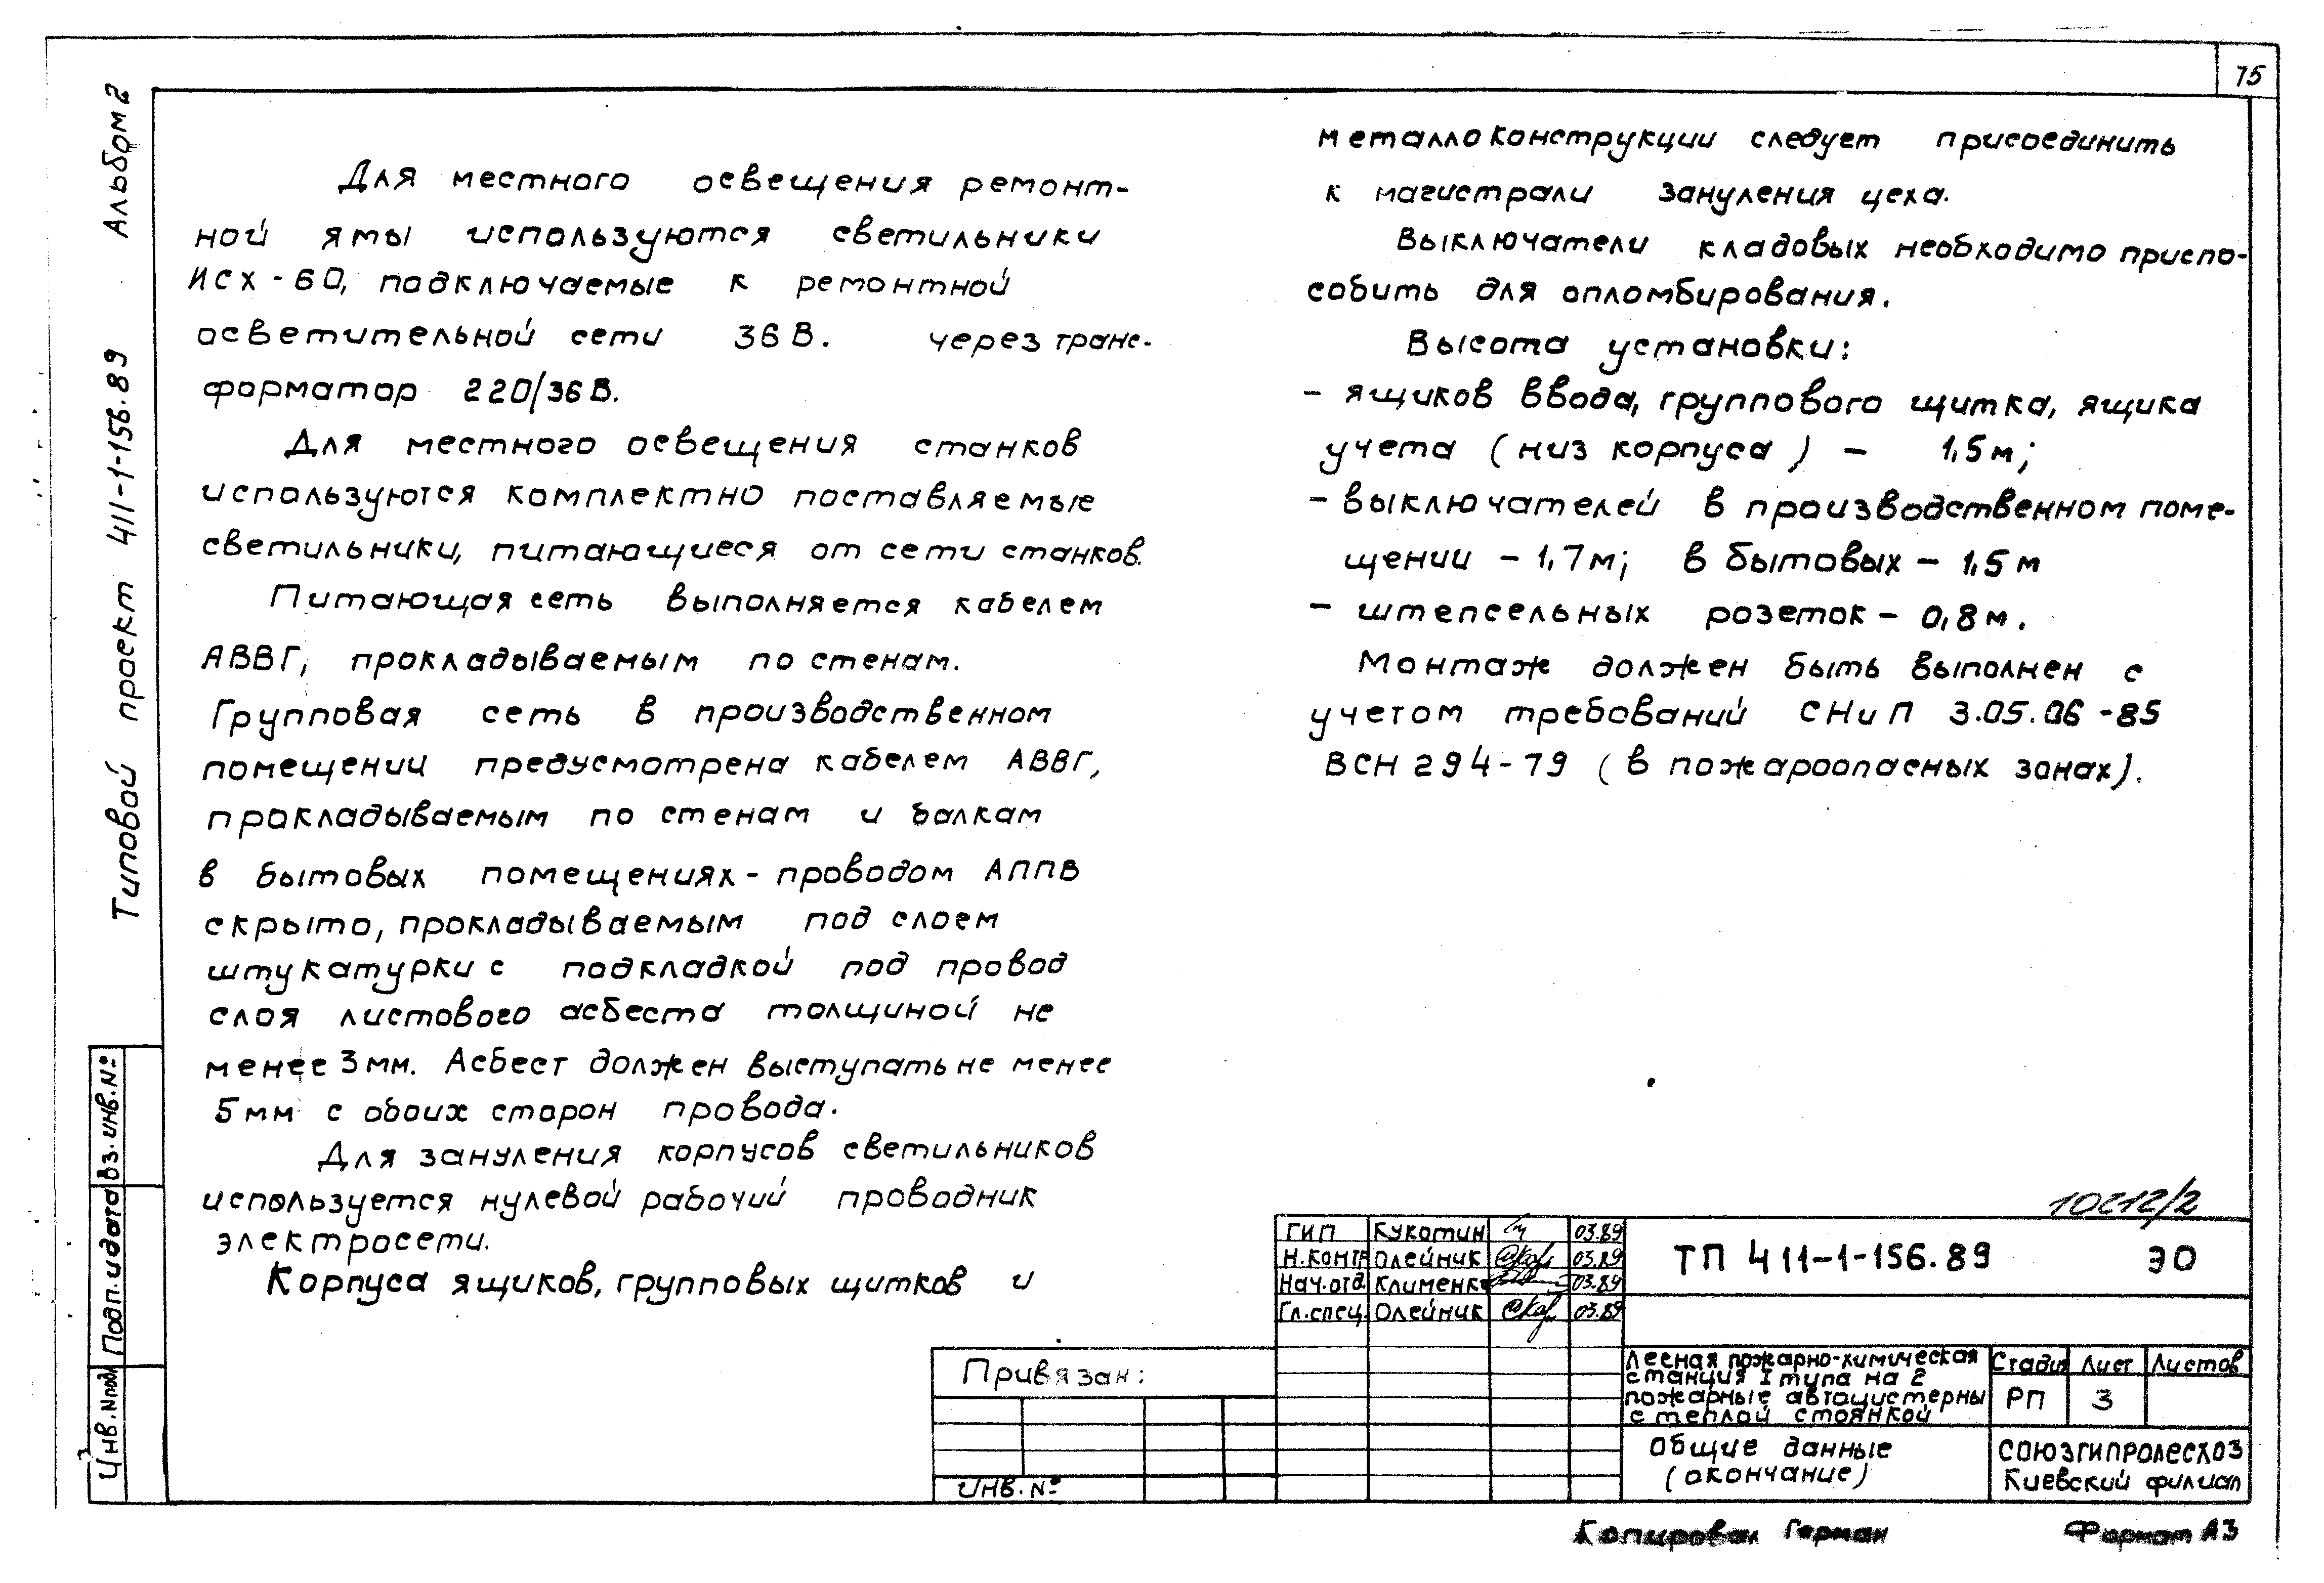 75
Альбом 2
Типовой проект 411-1-156.89
Для местного освещения ремонт-
ной ямы используются светильники
ИСХ-60, подключаемые к ремонтной
осветительной сети 36 В. через транс-
форматор 220/36 В.
Для местного освещения станков
используются комплектно поставляемые
светильники, питающиеся от сети станков.
Питающая сеть выполняется кабелем
АВВГ, прокладываемым по стенам.
Групповая сеть в производственном
помещении предусмотрена кабелем АВВГ,
прокладываемым по стенам и балкам
в бытовых помещениях - проводом АППВ
скрыто, прокладываемым под слоем
штукатурки с подкладкой под провод
слоя листового асбеста толщиной не
менее 3 мм. Асбест должен выступать не менее
5 мм с обоих сторон провода.
Для зануления корпусов светильников
используется нулевой рабочий проводник
электросети.
Корпуса ящиков, групповых щитков и
металлоконструкции следует присоединить
к магистрали зануления цеха.
Выключатели кладовых необходимо приспо-
собить для опломбирования.
Высота установки:
- ящиков ввода, группового щитка, ящика
учета (низ корпуса) - 1,5 м;
- выключателей в производственном поме-
щении - 1,7 м; в бытовых - 1,5 м
- штепсельных розеток - 0,8 м.
Монтаж должен быть выполнен с
учетом требований СНиП 3.05.06-85
ВСН 294-79 (в пожароопасных зонах).
Вз. инв. №
Подп. и дата
Инв. № подл
10212/2
ГИП Кукотин 03.89
Н.контр Олейник 03.89
Нач.отд. Клименко 03.89
Гл.спец. Олейник 03.89
ТП 411-1-156.89 ЭО
Привязан:
Инв. №
Лесная пожарно-химическая
станция I типа на 2
пожарные автоцистерны
с теплой стоянкой
Стадия Лист Листов
РП 3
Общие данные
(окончание)
СОЮЗГИПРОЛЕСХОЗ
Киевский филиал
Копировал Герман Формат А3